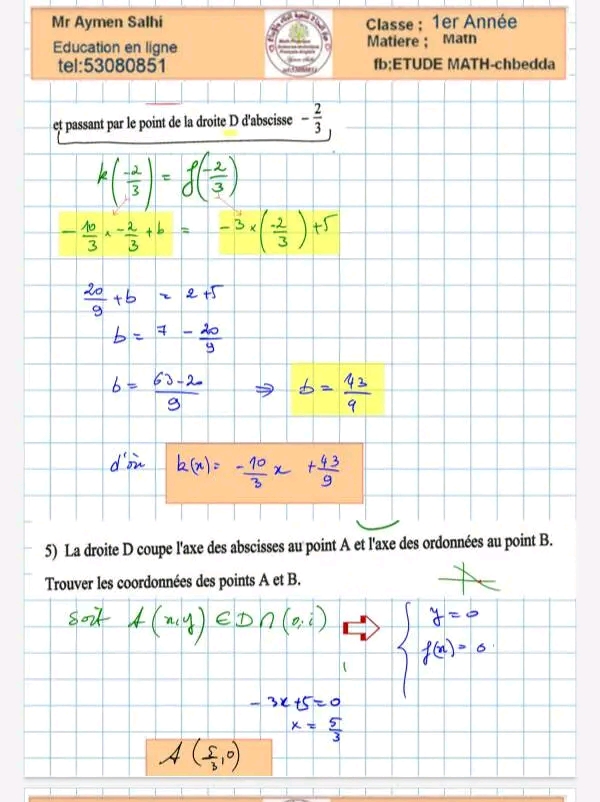 Mr Aymen Salhi
Education en ligne
tel:53080851
Classe ; 1er Année
Matiere ; Math
fb;ETUDE MATH-chbedda
et passant par le point de la droite D d'abscisse -2/3
k(-2/3) = f(-2/3)
-10/3 × -2/3 + b = -3 × (-2/3) + 5
20/9 + b = 2 + 5
b = 7 - 20/9
b = 63-20/9 ⇒ b = 43/9
d'où k(x) = -10/3 x + 43/9
5) La droite D coupe l'axe des abscisses au point A et l'axe des ordonnées au point B.
Trouver les coordonnées des points A et B.
Soit A(x,y) ∈ D ∩ (o,i) ⇒ { y = 0
f(x) = 0
-3x+5=0
x = 5/3
A (5/3, 0)